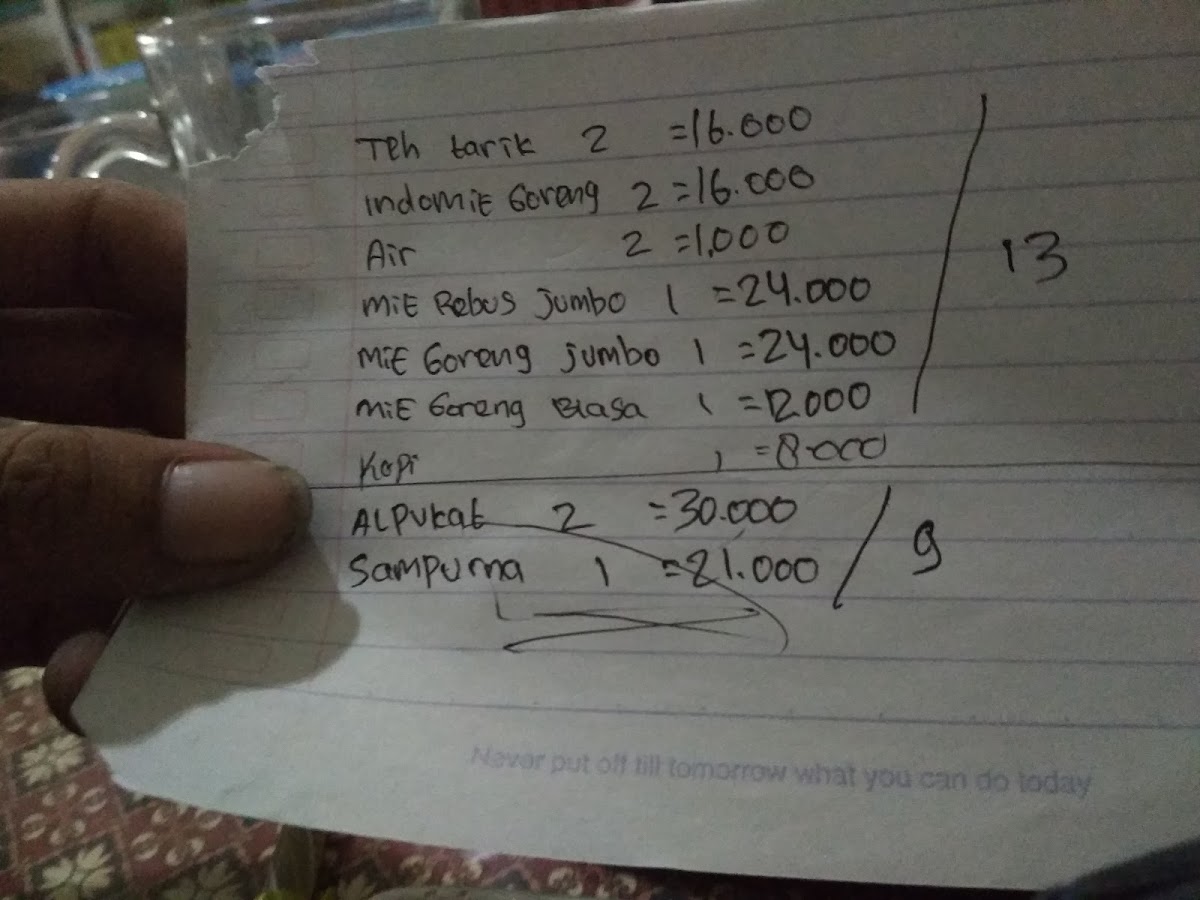 Teh tarik 2 =16.000
indomiE Goreng 2 =16.000
Air 2 =1,000
miE Rebus jumbo 1 =24.000
MiE Goreng jumbo 1 =24.000
MiE Goreng BIASA 1 =12.000
13
Kopi 1 =8.000
ALPUKat 2 =30.000
Sampurna 1 =21.000
9
Never put off till tomorrow what you can do today